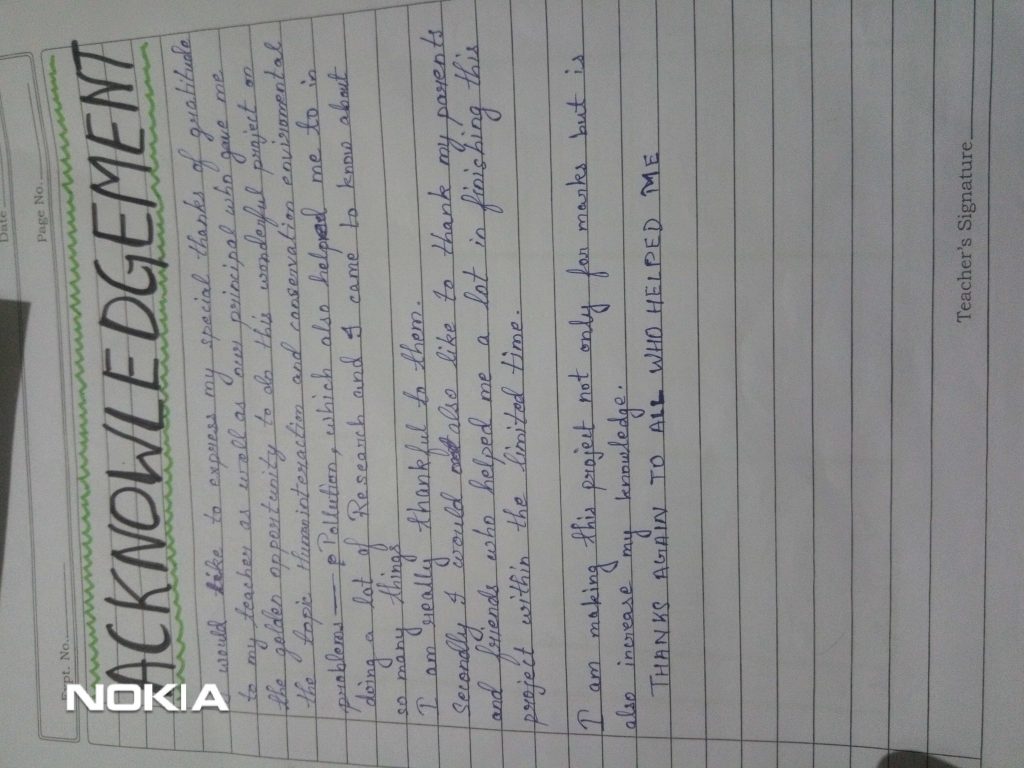 Date
Page No.
Expt. No.
ACKNOWLEDGEMENT
I would like to express my special thanks of gratitude
to my teacher as well as our principal who gave me
the golden opportunity to do this wonderful project on
the topic Human interaction and conservation environmental
problems — Pollution, which also helped me to in
doing a lot of Research and I came to know about
so many things
I am really thankful to them.
Secondly I would also like to thank my parents
and friends who helped me a lot in finishing this
project within the limited time.
I am making this project not only for marks but is
also increase my knowledge.
THANKS AGAIN TO ALL WHO HELPED ME
Teacher's Signature
NOKIA